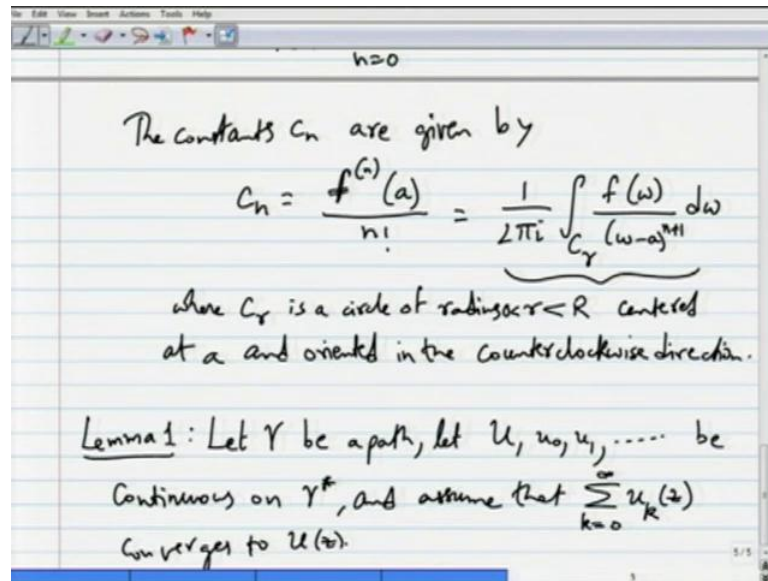 File Edit View Insert Actions Tools Help
n=0
The constants Cn are given by
Cn = f^(n)(a) / n! = 1/2πi ∫_Cγ f(ω)/(ω-a)^n+1 dω
where Cγ is a circle of radius 0<r<R centered
at a and oriented in the counterclockwise direction.
Lemma 1 : Let γ be a path, let U, u0, u1, ..... be
Continuous on γ*, and assume that ∑_k=0^∞ u_k(z)
Converges to U(z).
5/5